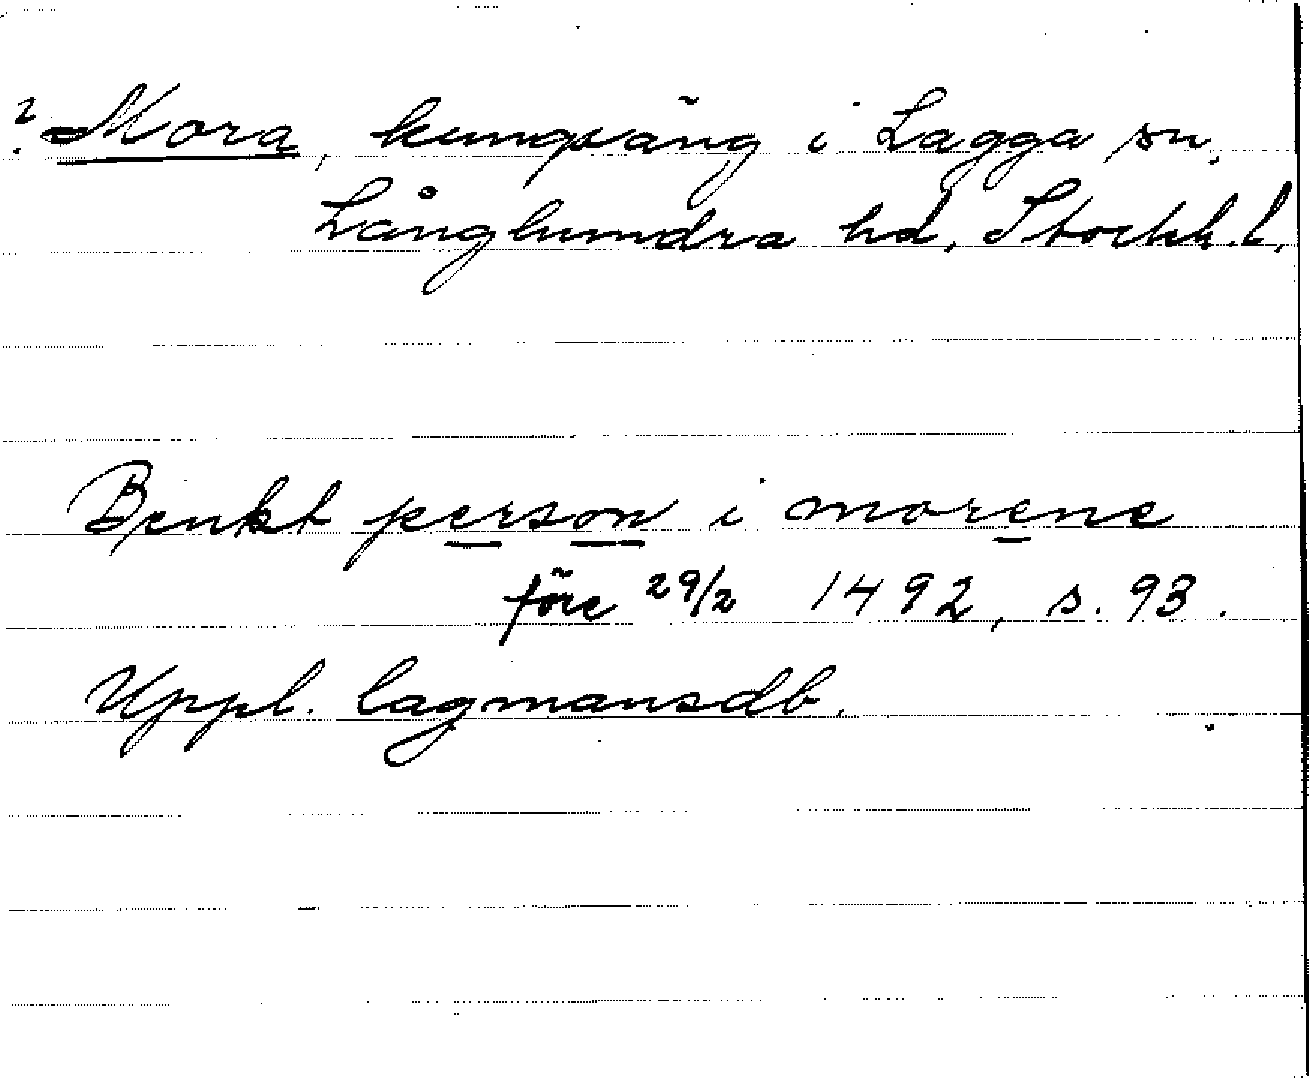 ? Mora, kungsäng i Lagga sn,
Långhundra hd, Stockh. l.
Benkt person i morene
före 29/2 1492, s. 93.
Uppl. lagmansdb.